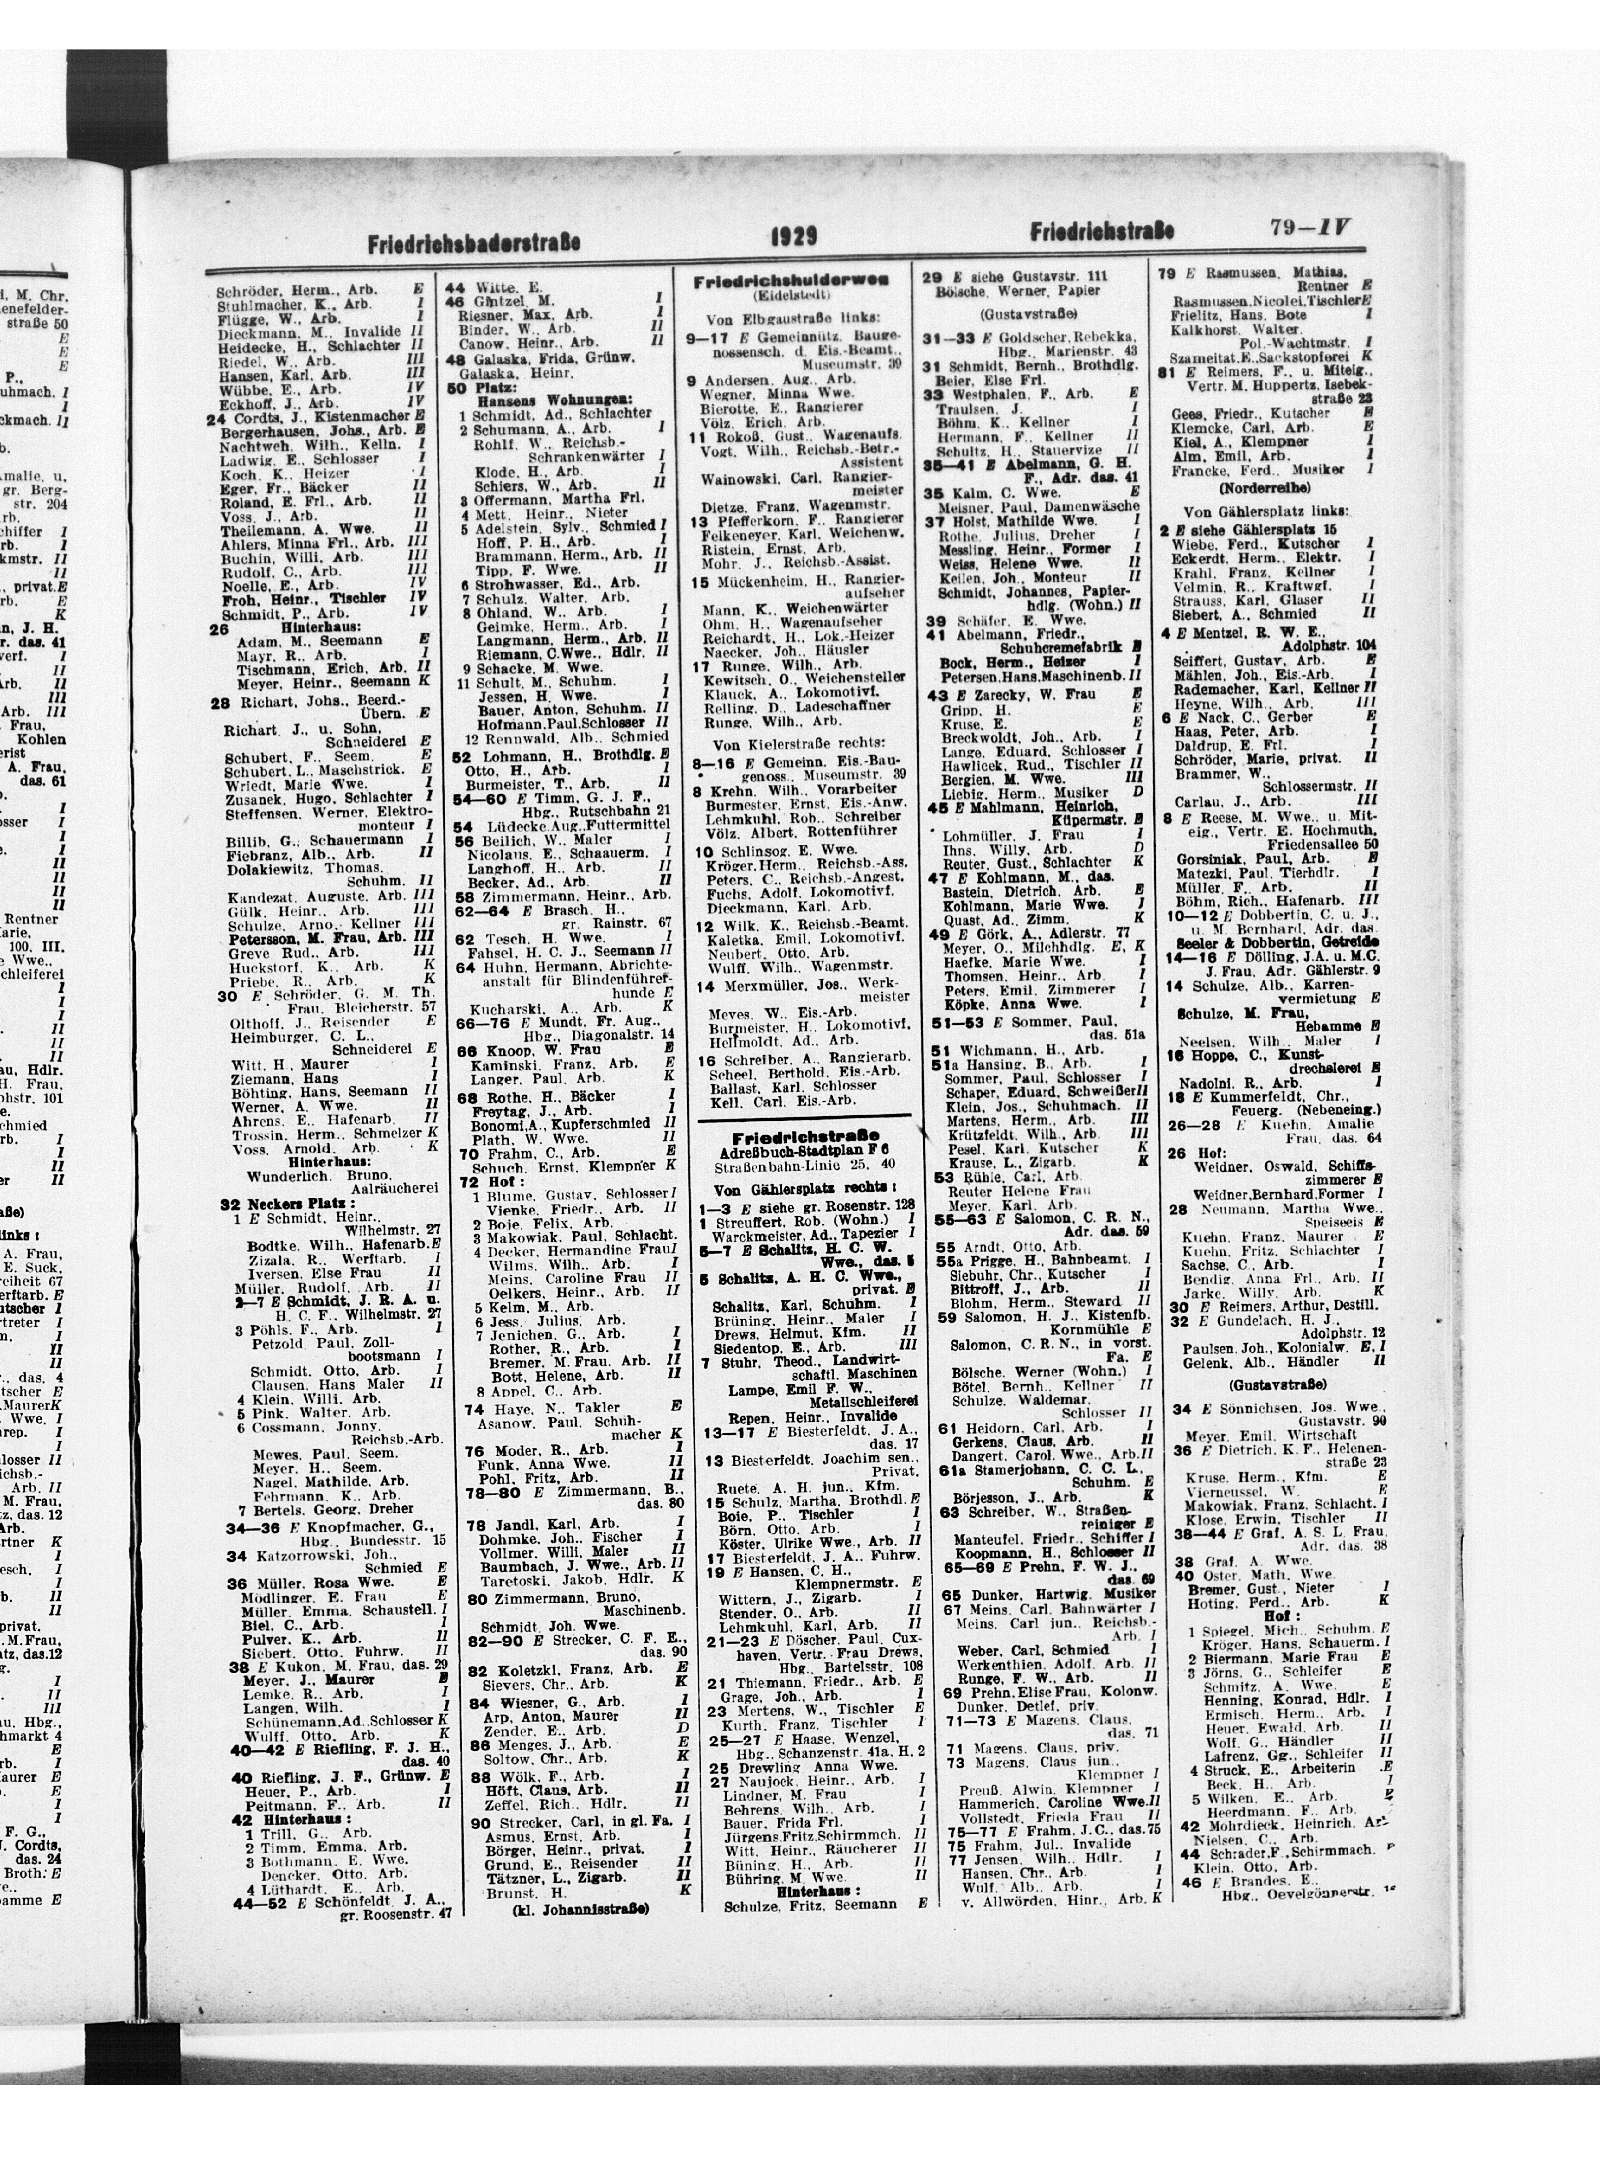 Friedrichsbaderstraße
1929
Friedrichstraße
79—IV
Schröder, Herm., Arb. E
Stuhlmacher, K., Arb. I
Flügge, W., Arb. I
Dieckmann, M., Invalide II
Heidecke, H., Schlachter II
Riedel, W., Arb. III
Hansen, Karl, Arb. III
Wübbe, E., Arb. IV
Eckhoff, J., Arb. IV
24 Cordts, J., Kistenmacher E
Bergerhausen, Johs., Arb. E
Nachtweh, Wilh., Kelln. I
Ladwig, E., Schlosser I
Koch, K., Heizer I
Eger, Fr., Bäcker II
Roland, E. Frl., Arb. II
Voss, J., Arb. II
Theilemann, A. Wwe. II
Ahlers, Minna Frl., Arb. III
Buchin, Willi, Arb. III
Rudolf, C., Arb. III
Noelle, E., Arb. IV
Froh, Heinr., Tischler IV
Schmidt, P., Arb. IV
26 Hinterhaus:
Adam, M., Seemann E
Mayr, R., Arb. I
Tischmann, Erich, Arb. II
Meyer, Heinr., Seemann K
28 Richart, Johs., Beerd.-
Übern. E
Richart, J., u. Sohn,
Schneiderei E
Schubert, F., Seem. E
Schubert, L., Maschstrick. E
Wriedt, Marie Wwe. I
Zusanek, Hugo, Schlachter I
Steffensen, Werner, Elektro-
monteur I
Billib, G., Schauermann I
Fiebranz, Alb., Arb. II
Dolakiewitz, Thomas,
Schuhm. II
Kandezat, Auguste, Arb. III
Gülk, Heinr., Arb. III
Schulze, Arno, Kellner III
Petersson, M. Frau, Arb. III
Greve, Rud., Arb. III
Huckstorf, K., Arb. K
Priebe, R., Arb. K
30 E Schröder, G. M. Th.
Frau, Bleicherstr. 57
Olthoff, J., Reisender E
Heimburger, C. L.,
Schneiderei E
Witt, H., Maurer I
Ziemann, Hans I
Böhting, Hans, Seemann II
Werner, A. Wwe. II
Ahrens, E., Hafenarb. II
Trossin, Herm., Schmelzer K
Voss, Arnold, Arb. K
Hinterhaus:
Wunderlich, Bruno,
Aalräucherei
32 Neckers Platz:
1 E Schmidt, Heinr.,
Wilhelmstr. 27
Bodtke, Wilh., Hafenarb. E
Zizala, R., Werftarb. I
Iversen, Else Frau II
Müller, Rudolf, Arb. II
2—7 E Schmidt, J. R. A. u.
H. C. F., Wilhelmstr. 27
3 Pöhls, F., Arb. I
Petzold, Paul, Zoll-
bootsmann I
Schmidt, Otto, Arb. I
Clausen, Hans, Maler II
4 Klein, Willi, Arb.
5 Pink, Walter, Arb.
6 Cossmann, Jonny,
Reichsb.-Arb.
Mewes, Paul, Seem.
Meyer, H., Seem.
Nagel, Mathilde, Arb.
Fehrmann, K., Arb.
7 Bertels, Georg, Dreher
34—36 E Knopfmacher, G.,
Hbg., Bundesstr. 15
34 Katzorrowski, Joh.,
Schmied E
36 Müller, Rosa Wwe. E
Mödlinger, E. Frau E
Müller, Emma, Schaustell. I
Biel, C., Arb. I
Pulver, K., Arb. II
Siebert, Otto, Fuhrw. II
38 E Kukon, M. Frau, das. 29
Meyer, J., Maurer E
Lemke, R., Arb. I
Langen, Wilh. I
Schünemann, Ad., Schlosser K
Wulff, Otto, Arb. K
40—42 E Riefling, F. J. H.,
das. 40
40 Riefling, J. F., Grünw. E
Heuer, P., Arb. I
Peitmann, F., Arb. II
42 Hinterhaus:
1 Trill, G., Arb.
2 Timm, Emma, Arb.
3 Bothmann, E. Wwe.
Dencker, Otto, Arb.
4 Lüthardt, E., Arb.
44—52 E Schönfeldt, J. A.,
gr. Roosenstr. 47
44 Witte, E.
46 Gintzel, M. I
Riesner, Max, Arb. I
Binder, W., Arb. II
Canow, Heinr., Arb. II
48 Galaska, Frida, Grünw.
Galaska, Heinr.
50 Platz:
Hansens Wohnungen:
1 Schmidt, Ad., Schlachter
2 Schumann, A., Arb. I
Rohlf, W., Reichsb.-
Schrankenwärter I
Klode, H., Arb. I
Schiers, W., Arb. II
3 Offermann, Martha Frl.
4 Mett, Heinr., Nieter
5 Adelstein, Sylv., Schmied I
Hoff, P. H., Arb. I
Brammann, Herm., Arb. II
Tipp, F. Wwe. II
6 Strohwasser, Ed., Arb.
7 Schulz, Walter, Arb.
8 Ohland, W., Arb. I
Geimke, Herm., Arb. I
Langmann, Herm., Arb. II
Riemann, C. Wwe., Hdlr. II
9 Schacke, M. Wwe.
11 Schult, M., Schuhm. I
Jessen, H. Wwe. I
Bauer, Anton, Schuhm. II
Hofmann, Paul, Schlosser II
12 Rennwald, Alb., Schmied
52 Lohmann, H., Brothdlg. E
Otto, H., Arb. I
Burmeister, T., Arb. II
54—60 E Timm, G. J. F.,
Hbg., Rutschbahn 21
54 Lüdecke, Aug., Futtermittel
56 Beilich, W., Maler I
Nicolaus, E., Schaauerm. I
Langhoff, H., Arb. II
Becker, Ad., Arb. II
58 Zimmermann, Heinr., Arb.
62—64 E Brasch, H.,
gr. Rainstr. 67
62 Tesch, H. Wwe. I
Fahsel, H. C. J., Seemann II
64 Huhn, Hermann, Abrichte-
anstalt für Blindenführer-
hunde E
Kucharski, A., Arb. K
66—76 E Mundt, Fr. Aug.,
Hbg., Diagonalstr. 14
66 Knoop, W. Frau E
Kaminski, Franz, Arb. E
Langer, Paul, Arb. K
68 Rothe, H., Bäcker I
Freytag, J., Arb. I
Bonomi, A., Kupferschmied II
Plath, W. Wwe. II
70 Frahm, C., Arb. E
Schuch, Ernst, Klempner K
72 Hof:
1 Blume, Gustav, Schlosser I
Vienke, Friedr., Arb. II
2 Boie, Felix, Arb.
3 Makowiak, Paul, Schlacht.
4 Decker, Hermandine Frau I
Wilms, Wilh., Arb. I
Meins, Caroline Frau II
Oelkers, Heinr., Arb. II
5 Kelm, M., Arb.
6 Jess, Julius, Arb.
7 Jenichen, G., Arb. I
Rother, R., Arb. I
Bremer, M. Frau, Arb. II
Bott, Helene, Arb. II
8 Appel, C., Arb.
74 Haye, N., Takler E
Asanow, Paul, Schuh-
macher K
76 Moder, R., Arb. I
Funk, Anna Wwe. II
Pohl, Fritz, Arb. II
78—80 E Zimmermann, B.,
das. 80
78 Jandl, Karl, Arb. I
Dohmke, Joh., Fischer I
Vollmer, Willi, Maler II
Baumbach, J. Wwe., Arb. II
Taretoski, Jakob, Hdlr. K
80 Zimmermann, Bruno,
Maschinenb.
Schmidt, Joh. Wwe.
82—90 E Strecker, C. F. E.,
das. 90
82 Koletzki, Franz, Arb. E
Sievers, Chr., Arb. K
84 Wiesner, G., Arb. I
Arp, Anton, Maurer II
Zender, E., Arb. D
86 Menges, J., Arb. E
Soltow, Chr., Arb. K
88 Wölk, F., Arb. I
Höft, Claus, Arb. II
Zeffel, Rich., Hdlr. II
90 Strecker, Carl, in gl. Fa. I
Asmus, Ernst, Arb. I
Börger, Heinr., privat. I
Grund, E., Reisender II
Tätzner, L., Zigarb. II
Brunst, H. K
(kl. Johannisstraße)
Friedrichshulderweg
(Eidelstedt)
Von Elbgaustraße links:
9—17 E Gemeinnütz. Bauge-
nossensch. d. Eis.-Beamt.,
Museumstr. 39
9 Andersen, Aug., Arb.
Wegner, Minna Wwe.
Bierotte, E., Rangierer
Völz, Erich, Arb.
11 Rokoß, Gust., Wagenaufs.
Vogt, Wilh., Reichsb.-Betr.-
Assistent
Wainowski, Carl, Rangier-
meister
Dietze, Franz, Wagenmstr.
13 Pfefferkorn, F., Rangierer
Felkeneyer, Karl, Weichenw.
Ristein, Ernst, Arb.
Mohr, J., Reichsb.-Assist.
15 Mückenheim, H., Rangier-
aufseher
Mann, K., Weichenwärter
Ohm, H., Wagenaufseher
Reichardt, H., Lok.-Heizer
Naecker, Joh., Häusler
17 Runge, Wilh., Arb.
Kewitsch, O., Weichensteller
Klauck, A., Lokomotivf.
Relling, D., Ladeschaffner
Runge, Wilh., Arb.
Von Kielerstraße rechts:
8—16 E Gemeinn. Eis.-Bau-
genoss., Museumstr. 39
8 Krehn, Wilh., Vorarbeiter
Burmester, Ernst, Eis.-Anw.
Lehmkuhl, Rob., Schreiber
Völz, Albert, Rottenführer
10 Schlinsog, E. Wwe.
Kröger, Herm., Reichsb.-Ass.
Peters, C., Reichsb.-Angest.
Fuchs, Adolf, Lokomotivf.
Dieckmann, Karl, Arb.
12 Wilk, K., Reichsb.-Beamt.
Kaletka, Emil, Lokomotivf.
Neubert, Otto, Arb.
Wulff, Wilh., Wagenmstr.
14 Merxmüller, Jos., Werk-
meister
Meves, W., Eis.-Arb.
Burmeister, H., Lokomotivf.
Hellmoldt, Ad., Arb.
16 Schreiber, A., Rangierarb.
Scheel, Berthold, Eis.-Arb.
Ballast, Karl, Schlosser
Kell, Carl, Eis.-Arb.
Friedrichstraße
Adreßbuch-Stadtplan F 6
Straßenbahn-Linie 25, 40
Von Gählersplatz rechts:
1—3 E siehe gr. Rosenstr. 128
1 Streuffert, Rob. (Wohn.) I
Warckmeister, Ad., Tapezier I
5—7 E Schalitz, H. C. W.
Wwe., das. 5
5 Schalitz, A. H. C. Wwe.,
privat. E
Schalitz, Karl, Schuhm. I
Brüning, Heinr., Maler I
Drews, Helmut, Kfm. II
Siedentop, E., Arb. III
7 Stuhr, Theod., Landwirt-
schaftl. Maschinen
Lampe, Emil F. W.,
Metallschleiferei
Repen, Heinr., Invalide
13—17 E Biesterfeldt, J. A.,
das. 17
13 Biesterfeldt, Joachim sen.,
Privat.
Ruete, A. H. jun., Kfm.
15 Schulz, Martha, Brothdl. E
Boie, P., Tischler I
Börn, Otto, Arb. I
Köster, Ulrike Wwe., Arb. II
17 Biesterfeldt, J. A., Fuhrw.
19 E Hansen, C. H.,
Klempnermstr. E
Wittern, J., Zigarb. I
Stender, O., Arb. II
Lehmkuhl, Karl, Arb. II
21—23 E Döscher, Paul, Cux-
haven, Vertr. Frau Drews,
Hbg., Bartelsstr. 108
21 Thiemann, Friedr., Arb. E
Grage, Joh., Arb. I
23 Mertens, W., Tischler E
Kurth, Franz, Tischler I
25—27 E Haase, Wenzel,
Hbg., Schanzenstr. 41a, H. 2
25 Drewling, Anna Wwe.
27 Naujock, Heinr., Arb. I
Lindner, M. Frau I
Behrens, Wilh., Arb. I
Bauer, Frida Frl. I
Jürgens, Fritz, Schirmmch. II
Witt, Heinr., Räucherer II
Büning, H., Arb. II
Bühring, M. Wwe. II
Hinterhaus:
Schulze, Fritz, Seemann E
29 E siehe Gustavstr. 111
Bölsche, Werner, Papier
(Gustavstraße)
31—33 E Goldscher, Rebekka,
Hbg., Marienstr. 43
31 Schmidt, Bernh., Brothdlg.
Beier, Else Frl.
33 Westphalen, F., Arb. E
Traulsen, J. I
Böhm, K., Kellner I
Hermann, F., Kellner II
Schultz, H., Stauervize II
35—41 E Abelmann, G. H.
F., Adr. das. 41
35 Kalm, C. Wwe. E
Meisner, Paul, Damenwäsche
37 Holst, Mathilde Wwe. I
Rothe, Julius, Dreher I
Messling, Heinr., Former I
Weiss, Helene Wwe. II
Keilen, Joh., Monteur II
Schmidt, Johannes, Papier-
hdlg. (Wohn.) II
39 Schäfer, E. Wwe.
41 Abelmann, Friedr.,
Schuhcremefabrik E
Bock, Herm., Heizer I
Petersen, Hans, Maschinenb. II
43 E Zarecky, W. Frau E
Gripp, H. E
Kruse, E. E
Breckwoldt, Joh., Arb. I
Lange, Eduard, Schlosser I
Hawlicek, Rud., Tischler II
Bergien, M. Wwe. III
Liebig, Herm., Musiker D
45 E Mahlmann, Heinrich,
Küpermstr. E
Lohmüller, J. Frau I
Ihns, Willy, Arb. D
Reuter, Gust., Schlachter K
47 E Kohlmann, M., das.
Bastein, Dietrich, Arb. E
Kohlmann, Marie Wwe. I
Quast, Ad., Zimm. K
49 E Görk, A., Adlerstr. 77
Meyer, O., Milchhdlg. E, K
Haefke, Marie Wwe. I
Thomsen, Heinr., Arb. I
Peters, Emil, Zimmerer I
Köpke, Anna Wwe. I
51—53 E Sommer, Paul,
das. 51a
51 Wichmann, H., Arb.
51a Hansing, B., Arb. I
Sommer, Paul, Schlosser I
Schaper, Eduard, Schweißer II
Klein, Jos., Schuhmach. II
Martens, Herm., Arb. III
Krützfeldt, Wilh., Arb. III
Pesel, Karl, Kutscher K
Krause, L., Zigarb. K
53 Rühle, Carl, Arb.
Reuter, Helene Frau
Meyer, Karl, Arb.
55—63 E Salomon, C. R. N.,
Adr. das. 59
55 Arndt, Otto, Arb.
55a Prigge, H., Bahnbeamt. I
Siebuhr, Chr., Kutscher I
Bittroff, J., Arb. II
Blohm, Herm., Steward II
59 Salomon, H. J., Kistenfb.
Kornmühle E
Salomon, C. R. N., in vorst.
Fa. E
Bölsche, Werner (Wohn.) I
Bötel, Bernh., Kellner II
Schulze, Waldemar,
Schlosser II
61 Heidorn, Carl, Arb. I
Gerkens, Claus, Arb. II
Dangert, Carol. Wwe., Arb. II
61a Stamerjohann, C. C. L.,
Schuhm. E
Börjesson, J., Arb. K
63 Schreiber, W., Straßen-
reiniger E
Manteufel, Friedr., Schiffer I
Koopmann, H., Schlosser II
65—69 E Prehn, F. W. J.,
das. 69
65 Dunker, Hartwig, Musiker
67 Meins, Carl, Bahnwärter I
Meins, Carl jun., Reichsb.-
Arb. I
Weber, Carl, Schmied I
Werkenthien, Adolf, Arb. II
Runge, F. W., Arb. II
69 Prehn, Elise Frau, Kolonw.
Dunker, Detlef, priv.
71—73 E Magens, Claus,
das. 71
71 Magens, Claus, priv.
73 Magens, Claus jun.,
Klempner I
Preuß, Alwin, Klempner I
Hammerich, Caroline Wwe. II
Vollstedt, Frieda Frau II
75—77 E Frahm, J. C., das. 75
75 Frahm, Jul., Invalide
77 Jensen, Wilh., Hdlr. I
Hansen, Chr., Arb. I
Wulf, Alb., Arb. I
v. Allwörden, Hinr., Arb. K
79 E Rasmussen, Mathias,
Rentner E
Rasmussen, Nicolei, Tischler E
Frielitz, Hans, Bote I
Kalkhorst, Walter,
Pol.-Wachtmstr. I
Szameitat, E., Sackstopferei K
81 E Reimers, F., u. Miteig.,
Vertr. M. Huppertz, Isebek-
straße 23
Gees, Friedr., Kutscher E
Klemcke, Carl, Arb. E
Kiel, A., Klempner I
Alm, Emil, Arb. I
Francke, Ferd., Musiker I
(Norderreihe)
Von Gählersplatz links:
2 E siehe Gählersplatz 15
Wiebe, Ferd., Kutscher I
Eckerdt, Herm., Elektr. I
Krahl, Franz, Kellner I
Velmin, R., Kraftwgf. I
Strauss, Karl, Glaser II
Siebert, A., Schmied II
4 E Mentzel, R. W. E.,
Adolphstr. 104
Seiffert, Gustav, Arb. E
Mählen, Joh., Eis.-Arb. I
Rademacher, Karl, Kellner II
Heyne, Wilh., Arb. III
6 E Nack, C., Gerber E
Haas, Peter, Arb. I
Daldrup, E. Frl. I
Schröder, Marie, privat. II
Brammer, W.,
Schlossermstr. II
Carlau, J., Arb. III
8 E Reese, M. Wwe., u. Mit-
eig., Vertr. E. Hochmuth,
Friedensallee 50
Gorsiniak, Paul, Arb. E
Matezki, Paul, Tierhdlr. I
Müller, F., Arb. II
Böhm, Rich., Hafenarb. III
10—12 E Dobbertin, C. u. J.,
u. M. Bernhard, Adr. das.
Seeler & Dobbertin, Getreide
14—16 E Dölling, J. A. u. M. C.
J. Frau, Adr. Gählerstr. 9
14 Schulze, Alb., Karren-
vermietung E
Schulze, M. Frau,
Hebamme E
Neelsen, Wilh., Maler I
16 Hoppe, C., Kunst-
drechslerei E
Nadolni, R., Arb. I
18 E Kummerfeldt, Chr.,
Feuerg. (Nebeneing.)
26—28 E Kuehn, Amalie
Frau, das. 64
26 Hof:
Weidner, Oswald, Schiffs-
zimmerer E
Weidner, Bernhard, Former I
28 Neumann, Martha Wwe.,
Speiseeis E
Kuehn, Franz, Maurer E
Kuehn, Fritz, Schlachter I
Sachse, C., Arb. I
Bendig, Anna Frl., Arb. II
Jarke, Willy, Arb. K
30 E Reimers, Arthur, Destill.
32 E Gundelach, H. J.,
Adolphstr. 12
Paulsen, Joh., Kolonialw. E, I
Gelenk, Alb., Händler II
(Gustavstraße)
34 E Sönnichsen, Jos. Wwe.,
Gustavstr. 90
Meyer, Emil, Wirtschaft
36 E Dietrich, K. F., Helenen-
straße 23
Kruse, Herm., Kfm. E
Vierneussel, W. E
Makowiak, Franz, Schlacht. I
Klose, Erwin, Tischler II
38—44 E Graf, A. S. L. Frau,
Adr. das. 38
38 Graf, A. Wwe.
40 Oster, Math. Wwe.
Bremer, Gust., Nieter I
Hoting, Ferd., Arb. K
Hof:
1 Spiegel, Mich., Schuhm. E
Kröger, Hans, Schauerm. I
2 Biermann, Marie Frau E
3 Jörns, G., Schleifer E
Schmitz, A. Wwe. E
Henning, Konrad, Hdlr. I
Ermisch, Herm., Arb. I
Heuer, Ewald, Arb. II
Wolf, G., Händler II
Lafrenz, Gg., Schleifer II
4 Struck, E., Arbeiterin E
Beck, H., Arb. I
5 Wilken, E., Arb.
Heerdmann, F., Arb.
42 Mohrdieck, Heinrich,
Nielsen, C., Arb.
44 Schrader, F., Schirmmach.
Klein, Otto, Arb.
46 E Brandes, E.,
Hbg., Oevelgönnerstr.